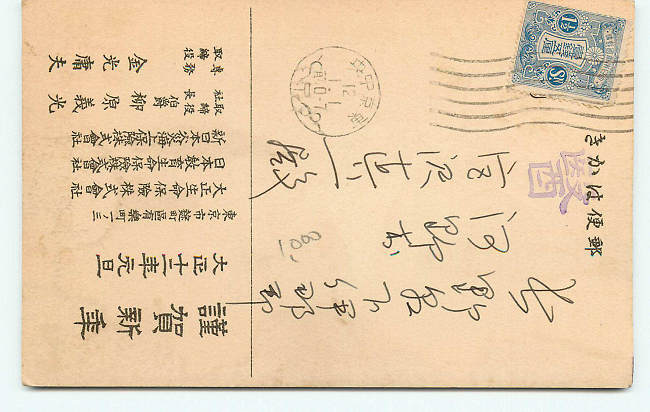 郵便はかき
長野縣下伊那郡
河野村
謹賀新年
大正十二年元旦
東京市麹町區有樂町一ノ三
大正生命保險株式會社
日本教育生命保險株式會社
新日本火災海上保險株式會社
社長 取締役 伯爵 柳原義光
專務 取締役 金光庸夫
1½